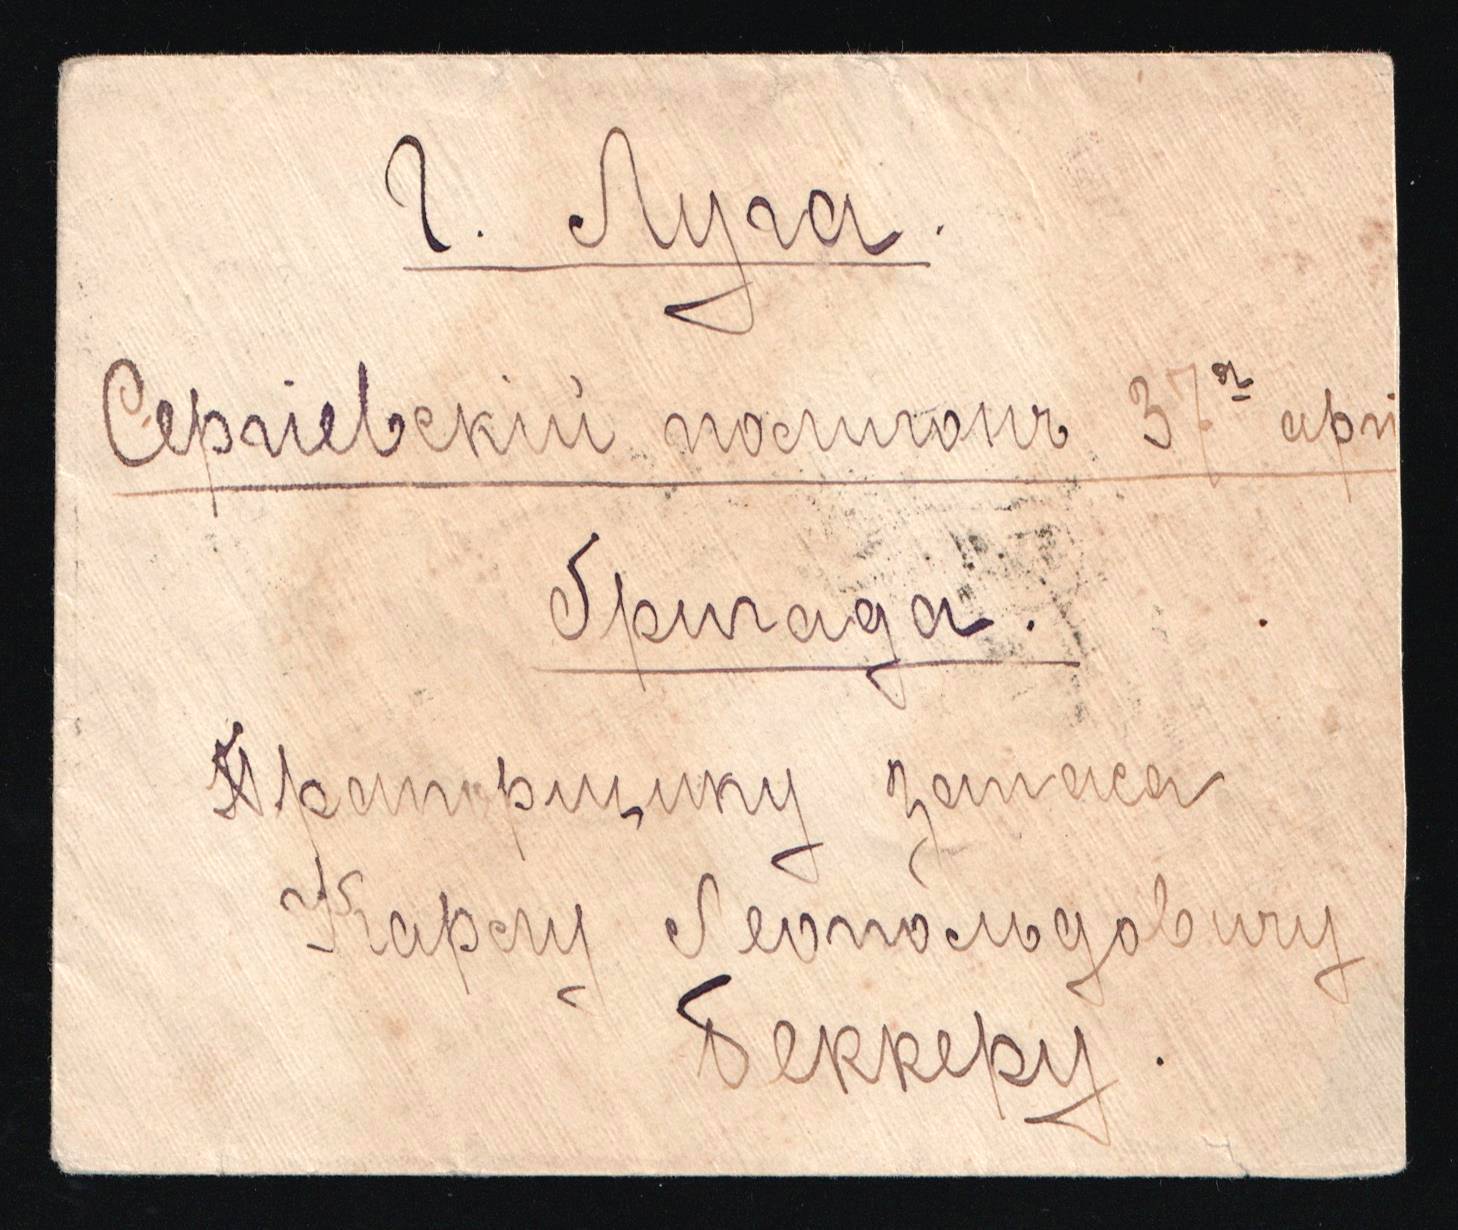 Г. Луга.
Сергіевскій полигонъ 37я арт
бригада.
Прапорщику запаса
Карлу Леопольдовичу
Беккеру.